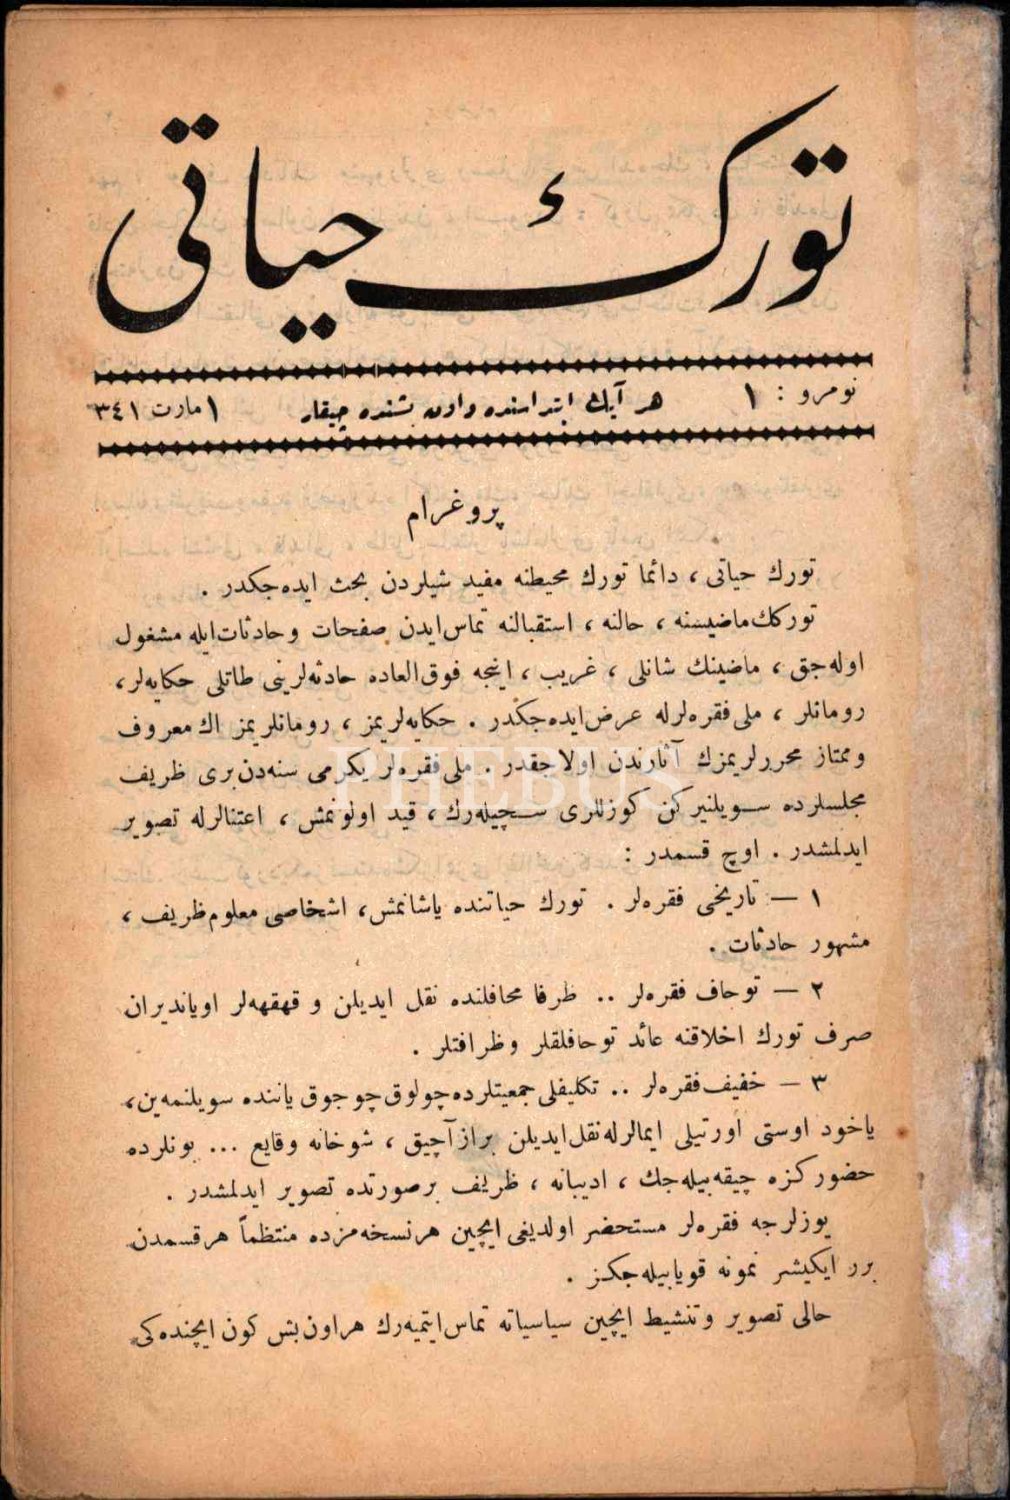 تورك حياتی
نومرو : ١ هر آيك ابتداسنده و اون بشنده چيقار ١ مارت ٣٤١
پروغرام
تورك حياتی ، دائما تورك محيطنه مفيد شيلردن بحث ايده جكدر .
توركك ماضيسنه ، حالنه ، استقبالنه تماس ايدن صفحات و حادثات ايله مشغول
اوله جق ، ماضينك شانلی ، غريب ، اينجه فوق العاده حادثه لرينی طاتلی حكايه لر ،
رومانلر ، ملی فقره لرله عرض ايده جكدر . حكايه لريمز ، رومانلريمز اك معروف
وممتاز محررلريمزك آثارندن اولاجقدر . ملی فقره لر يكرمی سنه دن بری ظريف
PHEBUS
مجلسلرده سويلنيركن كوزللری سچيله رك ، قيد اولونمش ، اعتنالرله تصوير
ايدلمشدر . اوچ قسمدر :
١ — تاريخی فقره لر . تورك حياتنده ياشانمش ، اشخاصی معلوم ظريف ،
مشهور حادثات .
٢ — توحاف فقره لر .. ظرفا محافلنده نقل ايديلن و قهقهه لر اويانديران
صرف تورك اخلاقنه عائد توحافلقلر و ظرافتلر .
٣ — خفيف فقره لر .. تكليفلی جمعيتلرده چولوق چوجوق ياننده سويلنمه ين ،
ياخود اوستی اورتيلی ايمالرله نقل ايديلن براز آچيق ، شوخانه وقايع ... بونلرده
حضوركزه چيقه بيله جك ، اديبانه ، ظريف برصورتده تصوير ايدلمشدر .
يوزلرجه فقره لر مستحضر اولديغی ايچين هر نسخه مزده منتظماً هر قسمدن
برر ايكيشر نمونه قويابيله جكز .
حالی تصوير و تنشيط ايچين سياسياته تماس ايتميه رك هر اون بش كون ايچنده كی